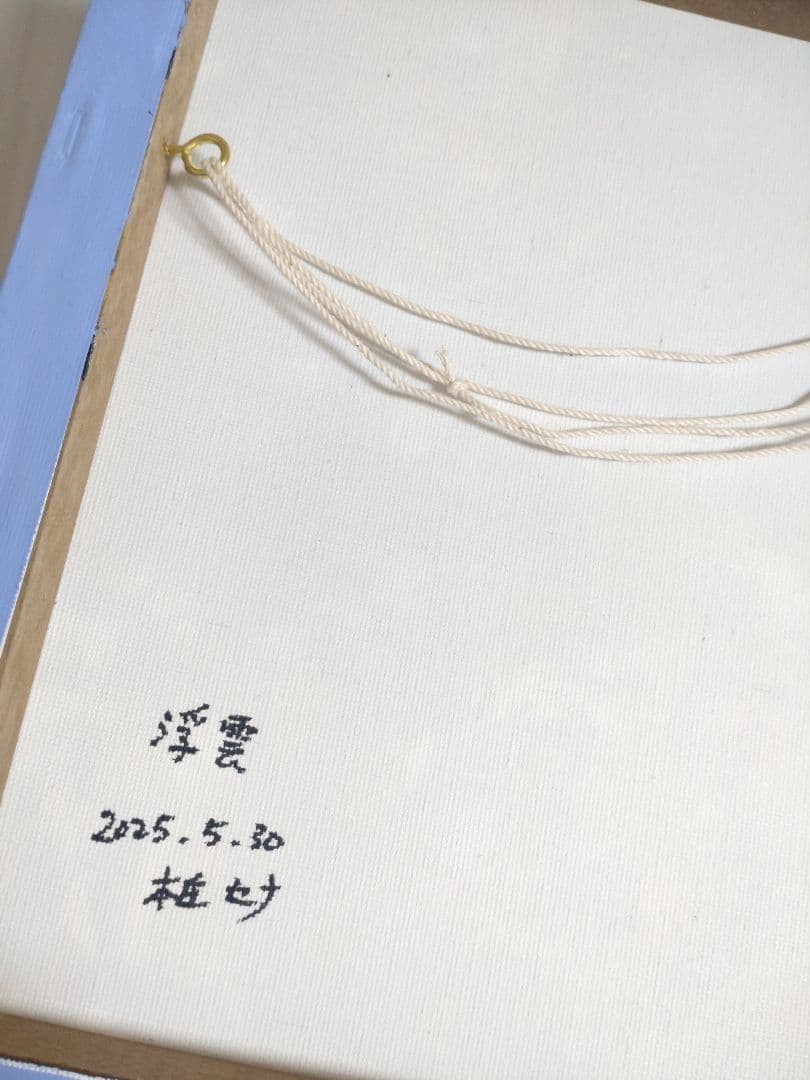 浮雲
2025.5.30
本庄 セナ